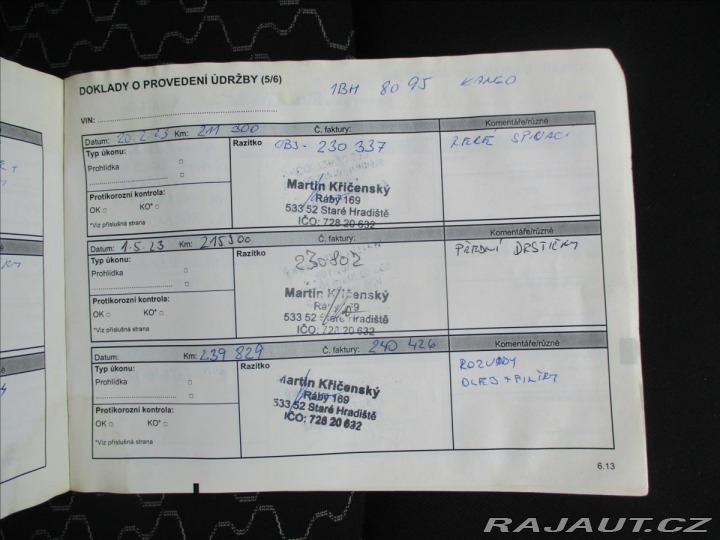 DOKLADY O PROVEDENÍ ÚDRŽBY (5/6)
1BH 80 95 KANGO
VIN:
Datum: 20.2.23 Km: 211 300 Č. faktury: Komentáře/různé
Typ úkonu: Razítko OBJ- 230 337 RELÉ SPÍNACÍ
Prohlídka
Martin Křičenský
Ráby 169
Protikorozní kontrola: 533 52 Staré Hradiště
OK KO* IČO: 728 20 632
*Viz příslušná strana
Datum: 1.5.23 Km: 215300 Č. faktury: Komentáře/různé
Typ úkonu: Razítko 230802 PŘEDNÍ DESTIČKY
Prohlídka
Martin Křičenský
Protikorozní kontrola: Ráby 169
533 52 Staré Hradiště
OK KO* IČO: 728 20 632
*Viz příslušná strana
Datum: Km: 239 829 Č. faktury: 240 426 Komentáře/různé
Typ úkonu: Razítko ROZVODY
Prohlídka Martin Křičenský OLEJ + FILTRY
Ráby 169
Protikorozní kontrola: 533 52 Staré Hradiště
OK KO* IČO: 728 20 632
*Viz příslušná strana
6.13
RAJAUT.CZ